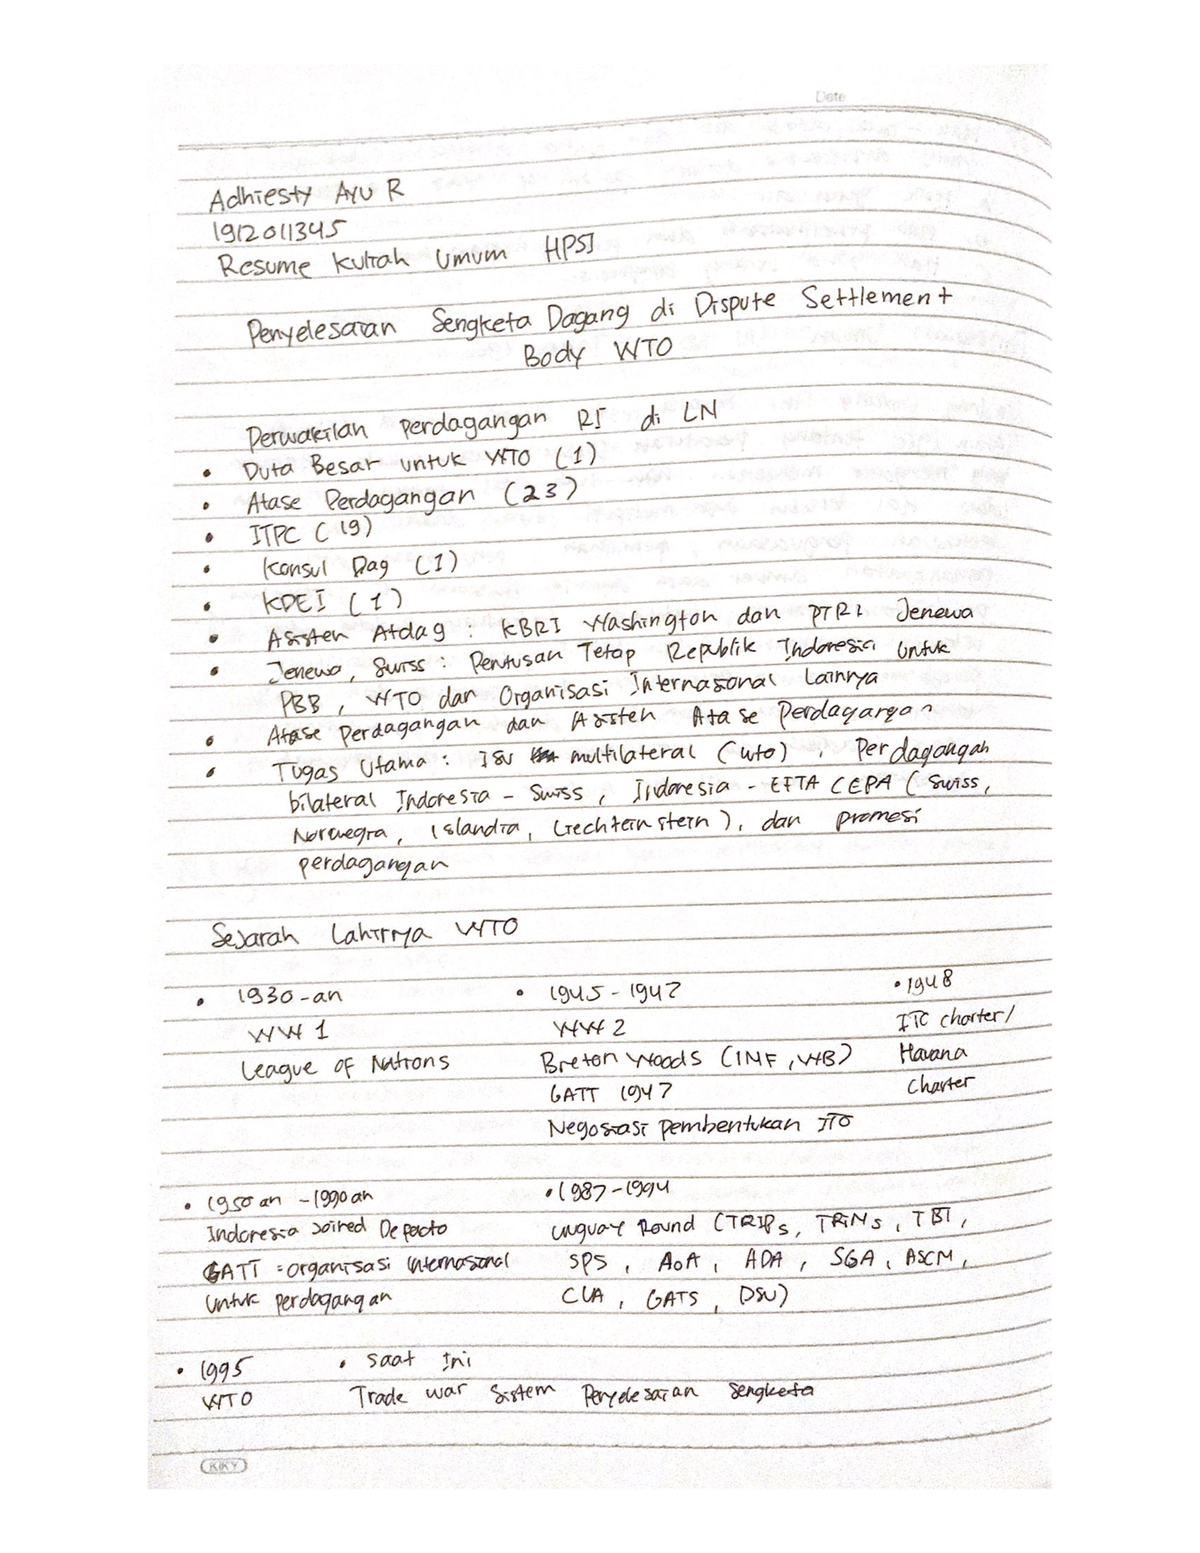 Date
Adhiesty Ayu R
1912011345
Resume Kuliah Umum HPSI
Penyelesaian Sengketa Dagang di Dispute Settlement
Body WTO
Perwakilan Perdagangan RI di LN
• Duta Besar untuk WTO (1)
• Atase Perdagangan (23)
• ITPC (19)
• Konsul Dag (1)
• KDEI (1)
• Asisten Atdag : KBRI Washington dan PTRI Jenewa
• Jenewa, Swiss : Perutusan Tetap Republik Indonesia Untuk
PBB, WTO dan Organisasi Internasional Lainnya
• Atase Perdagangan dan Asisten Atase Perdagangan
• Tugas Utama : Isu multilateral (WTO), Perdagangan
bilateral Indonesia - Swiss, Indonesia - EFTA CEPA (Swiss,
Norwegia, Islandia, Liechteinstern), dan promosi
perdagangan
Sejarah Lahirnya WTO
• 1930-an • 1945 - 1947 • 1948
WW 1 WW 2 ITC charter/
League of Nations Breton Woods (IMF, WB) Havana
GATT 1947 Charter
Negosiasi pembentukan ITO
• 1950 an - 1990 an • 1987 - 1994
Indonesia Joined De facto Uruguay Round (TRIPs, TRIMs, TBT,
GATT = organisasi internasional SPS, AoA, ADA, SGA, ASCM,
Untuk perdagangan CUA, GATS, DSU)
• 1995 • Saat Ini
WTO Trade war Sistem Penyelesaian Sengketa
KIKY